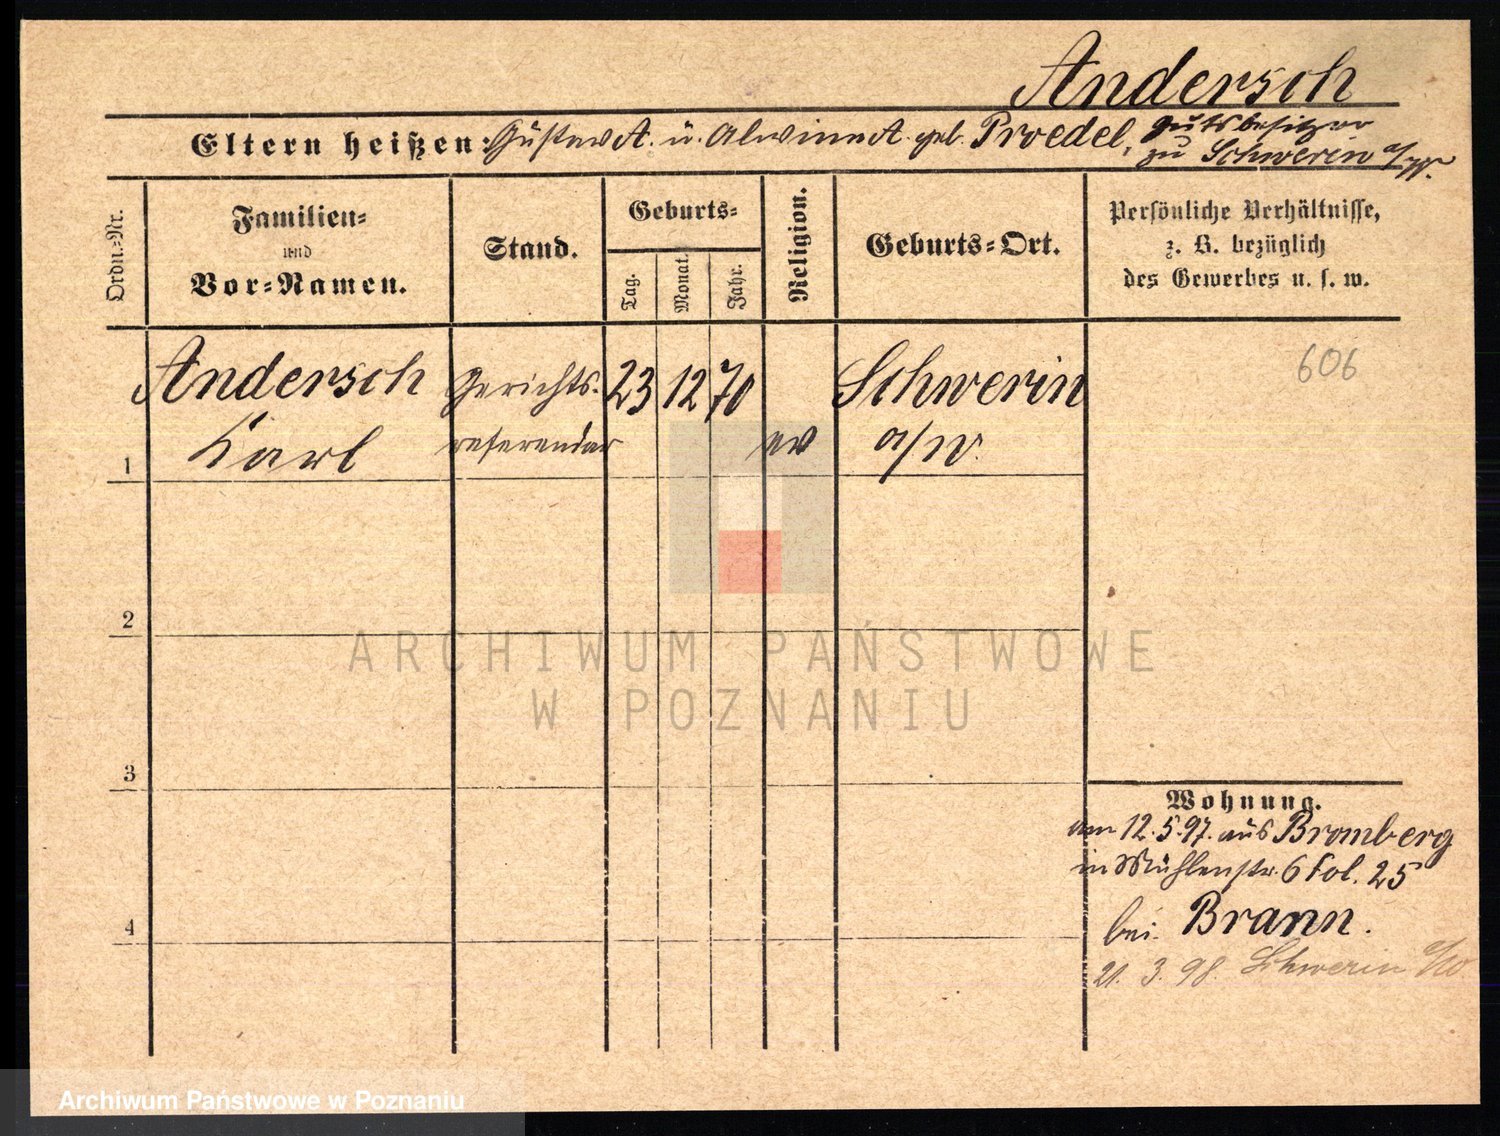 Andersch
Eltern heißen: Gustav A. u. Alwine A. geb. Proedel, Gutsbesitzer
zu Schwerin a/W.
Ordn.-Nr.
Familien-
und
Vor-Namen.
Stand.
Geburts-
Tag.
Monat.
Jahr.
Religion.
Geburts-Ort.
Persönliche Verhältnisse,
z. B. bezüglich
des Gewerbes u. s. w.
606
Andersch Gerichts- 23 12 70 Schwerin
1 Karl referendar ev a/W.
2
3
4
Wohnung.
am 12.5.97. aus Bromberg
in Mühlenstr. 6 fol. 25
bei Brann.
21. 3. 98. Schwerin a/W
ARCHIWUM PAŃSTWOWE
W POZNANIU
Archiwum Państwowe w Poznaniu